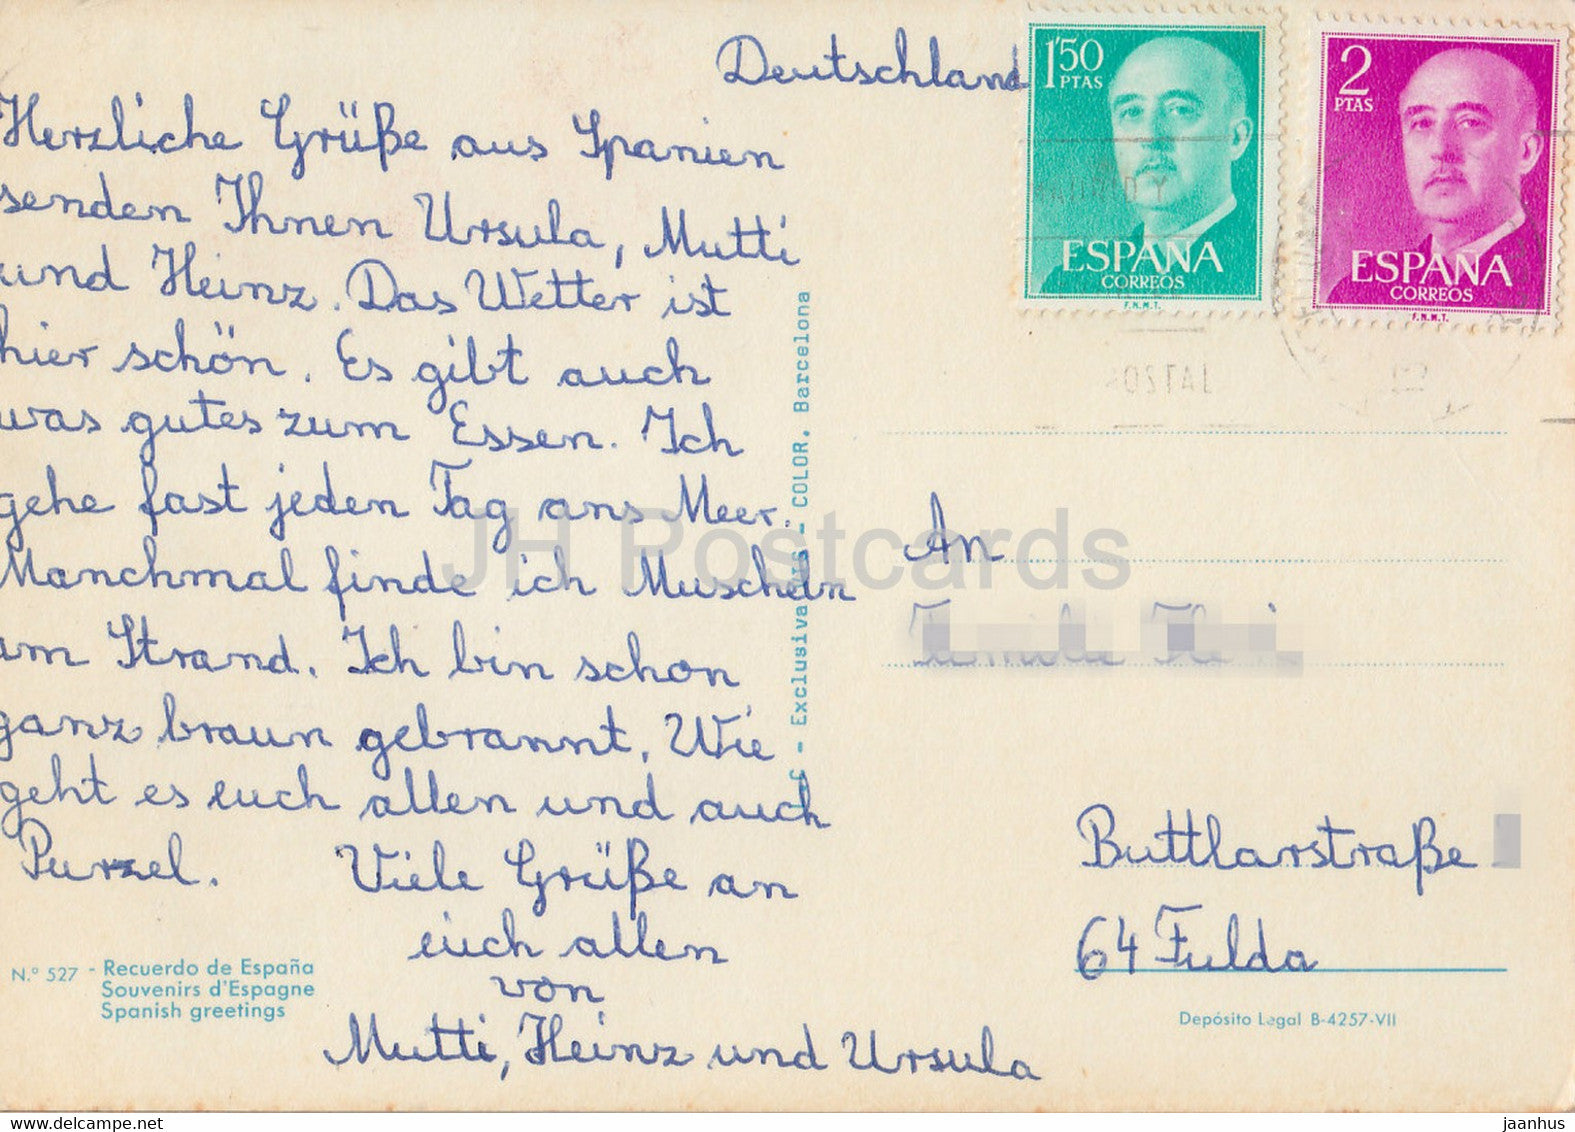 Deutschland
Herzliche Grüße aus Spanien
senden Ihnen Ursula, Mutti
und Heinz. Das Wetter ist
hier schön. Es gibt auch
was gutes zum Essen. Ich
gehe fast jeden Tag ans Meer.
Manchmal finde ich Muscheln
am Strand. Ich bin schon
ganz braun gebrannt. Wie
geht es euch allen und auch
Purzel. Viele Grüße an
euch allen
von
Mutti, Heinz und Ursula
N.° 527 - Recuerdo de España
Souvenirs d'Espagne
Spanish greetings
C - Exclusivas - COLOR. Barcelona
1'50
PTAS
ESPAÑA
CORREOS
F.N.M.T.
2
PTAS
ESPAÑA
CORREOS
F.N.M.T.
An
Buttlarstraße
64 Fulda
Depósito Legal B-4257-VII
JH Postcards
www.delcampe.net
jaanhus